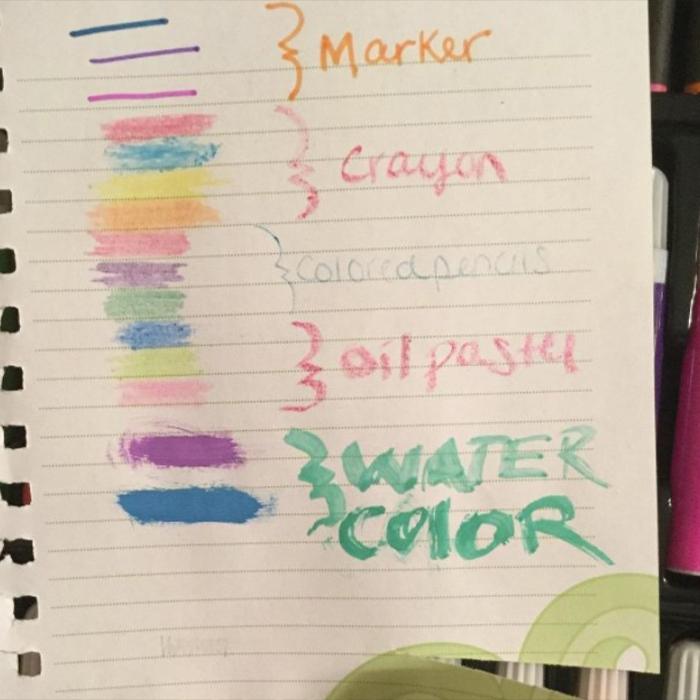 Marker
Crayon
Colored pencils
Oil pastel
WATER
COLOR